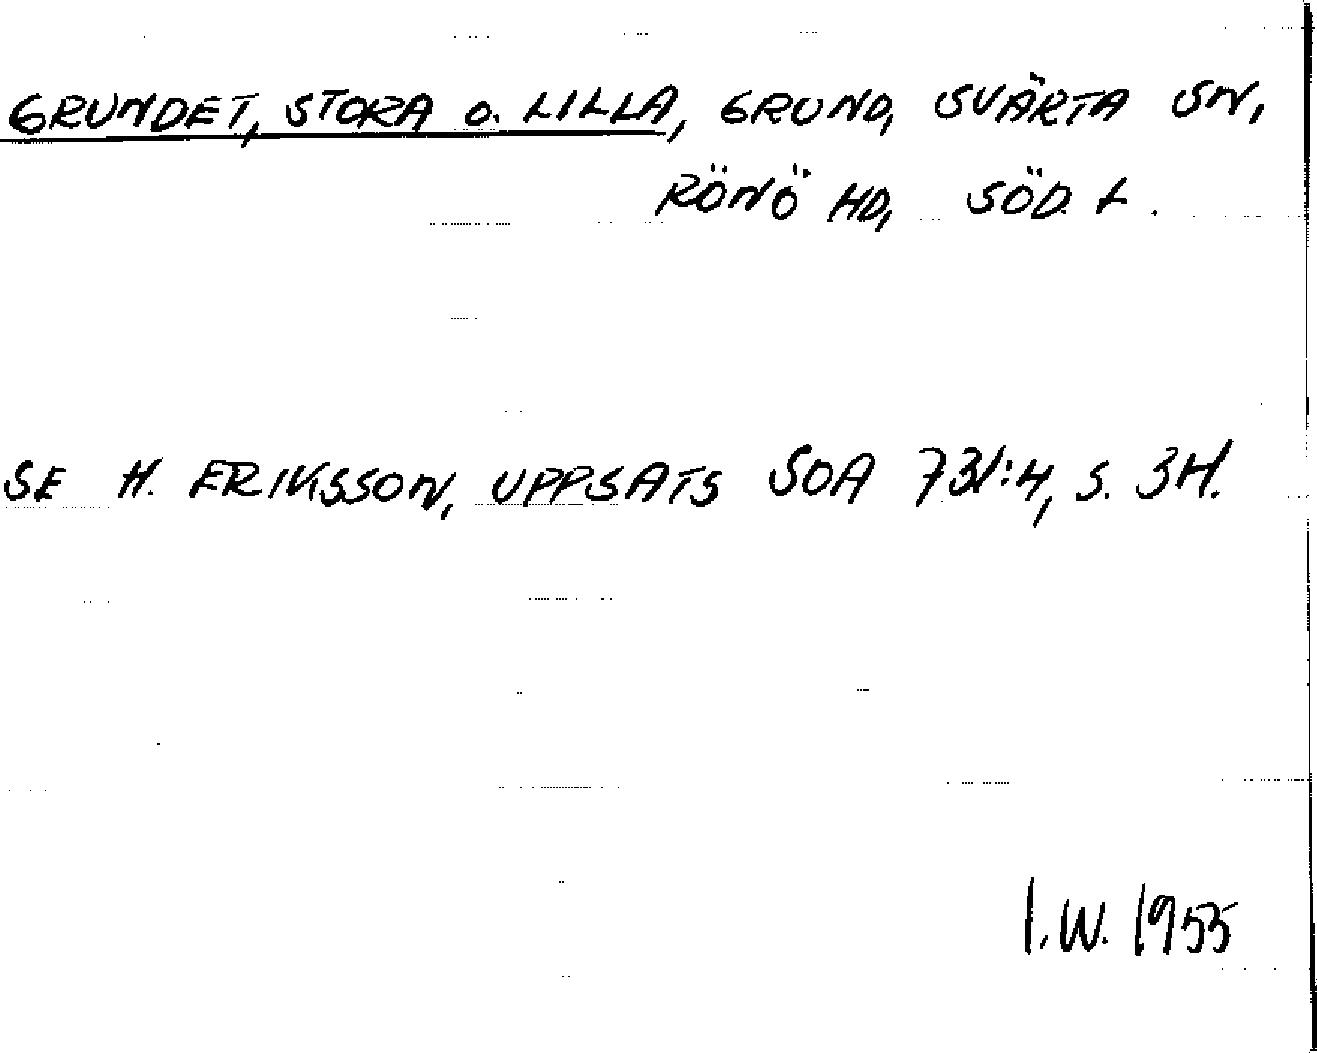 GRUNDET, STORA o. LILLA, GRUND, SVÄRTA SN,
RÖNÖ HD, SÖD. L.
SE H. ERIKSSON, UPPSATS SOA 731:4, S. 34.
I.W. 1955